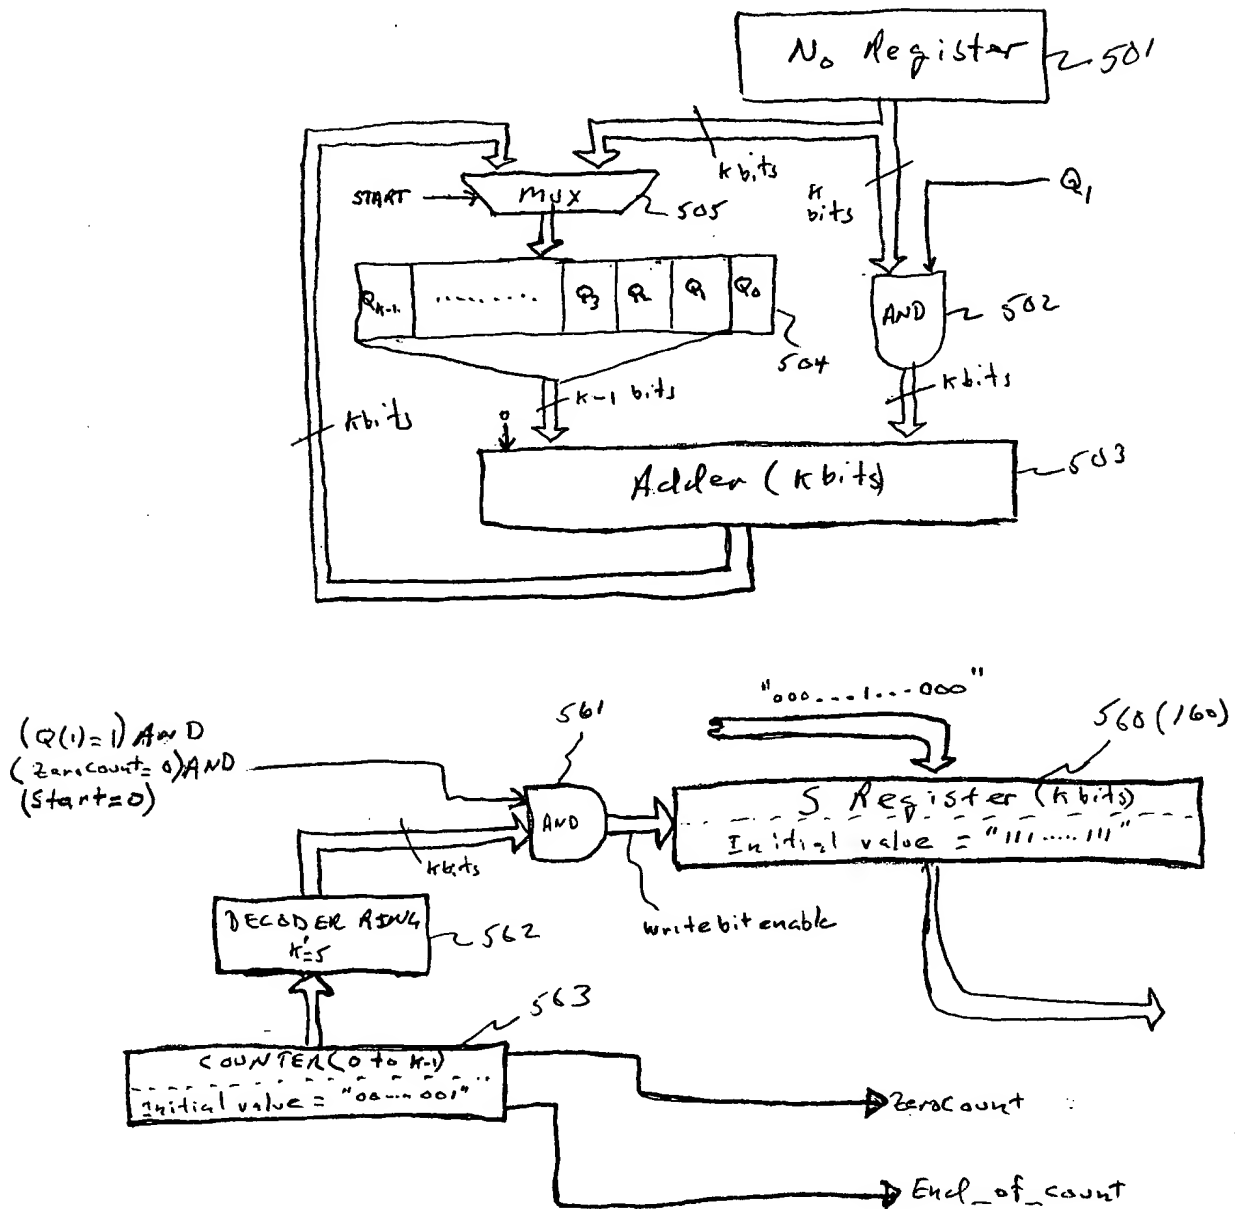 N₀ Register
501
k bits
k bits
Q₁
START
MUX
505
Qk-1
.........
Q3
Q2
Q1
Q0
AND
502
504
k-1 bits
k bits
k bits
0
Adder (k bits)
503
"000...1...000"
561
560 (160)
(Q(1)=1) AND
(Zerocount=0) AND
(Start=0)
AND
S Register (k bits)
Initial value = "111.....111"
k bits
write bit enable
DECODER RING
k'=5
562
563
COUNTER (0 to k-1)
Initial value = "00...001"
Zerocount
End_of_count